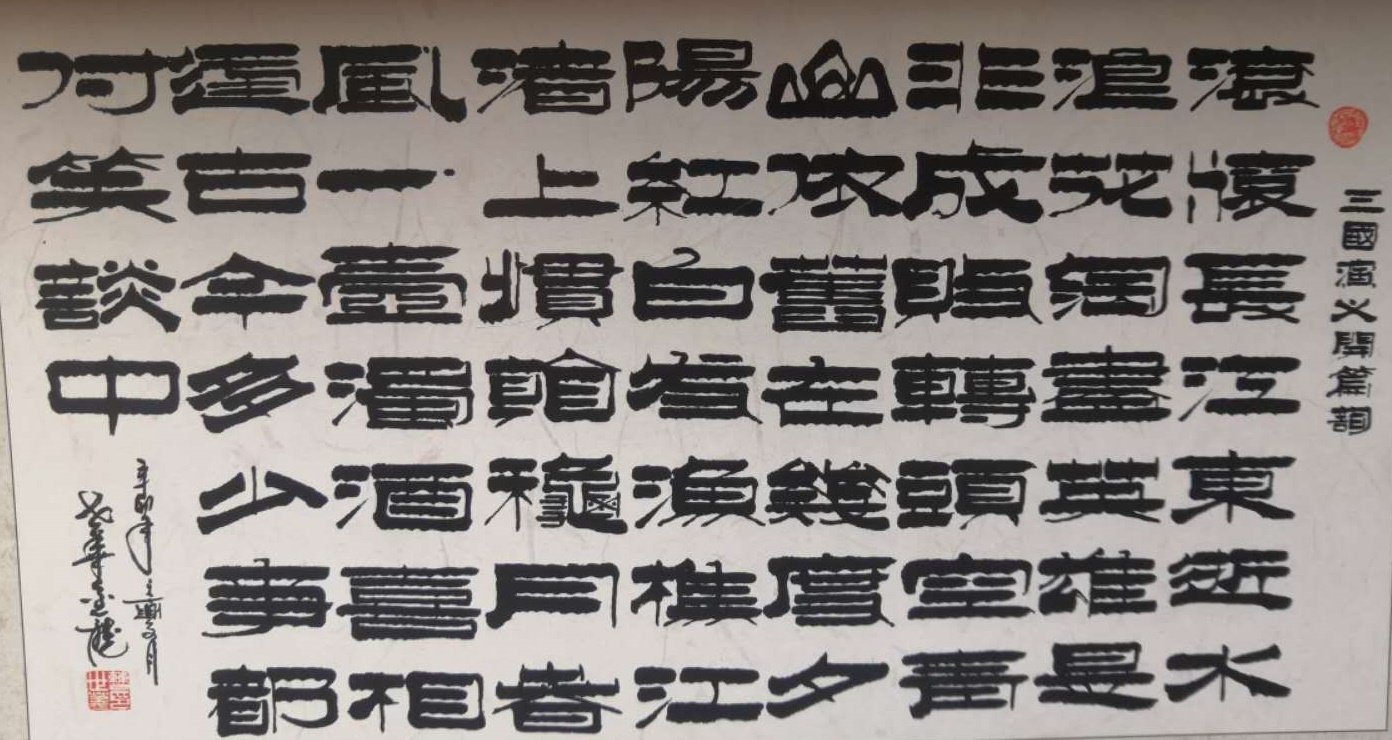 三國演义開篇詞
滾滾長江東逝水
浪花淘盡英雄是
非成敗轉頭空青
山依舊在幾度夕
陽紅白发漁樵江
渚上慣看龝月春
風一壺濁酒喜相
逢古今多少事都
付笑談中
辛卯年